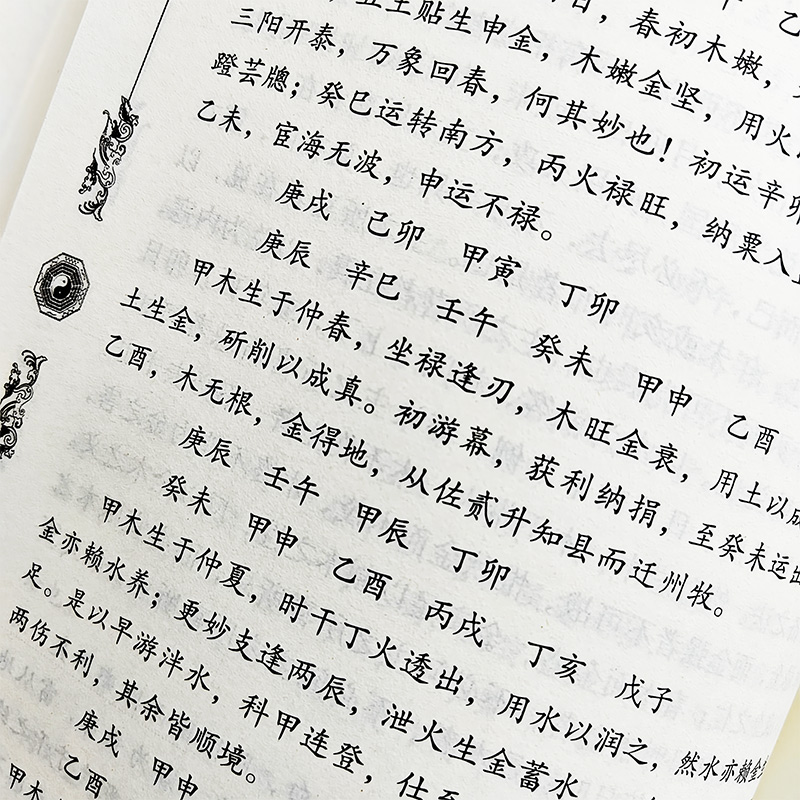 五土贴生申金，木嫩金坚，用火
春初木嫩，
三阳开泰，万象回春，何其妙也！初运辛卯
蹬芸牕；癸巳运转南方，丙火禄旺，纳粟入
乙未，宦海无波，申运不禄。
庚戌 己卯 甲寅 丁卯
庚辰 辛巳 壬午 癸未 甲申 乙酉
甲木生于仲春，坐禄逢刃，木旺金衰，用土以成
土生金，斫削以成真。初游幕，获利纳捐，至癸未运出
乙酉，木无根，金得地，从佐贰升知县而迁州牧。
庚辰 壬午 甲辰 丁卯
癸未 甲申 乙酉 丙戌 丁亥 戊子
甲木生于仲夏，时干丁火透出，用水以润之，然水亦赖金
金亦赖水养；更妙支逢两辰，泄火生金蓄水
足。是以早游泮水，科甲连登，仕至
两伤不利，其余皆顺境。
庚戌 甲申
乙酉
甲木